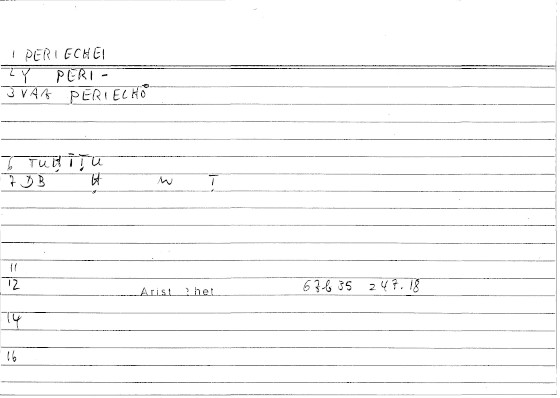 1 PERIECHEI
2 Y PERI -
3 VAR PERIECHŌ
6 TUḤĪṬU
7 DB Ḥ W Ṭ
11
12 Arist Rhet 67b35 247.18
14
16